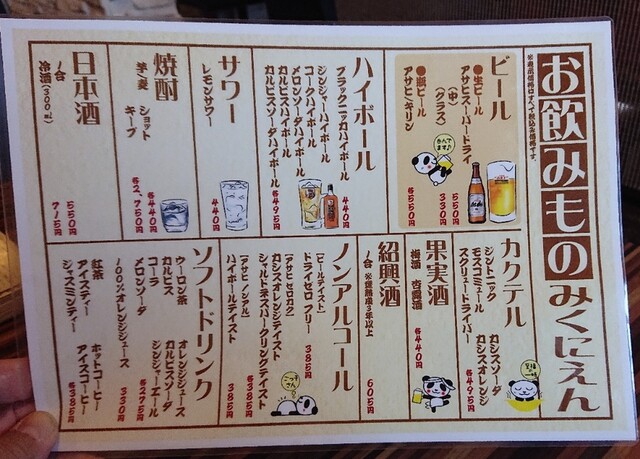 お飲みもの みくにえん
※表示価格はすべて税込み価格です。
ビール
●生ビール
アサヒスーパードライ
(中) 550円
(グラス) 330円
●瓶ビール
アサヒ/キリン 各550円
ハイボール
ブラックニッカハイボール 440円
ジンジャーハイボール
コークハイボール
メロンソーダハイボール
カルピスハイボール
カルピスソーダハイボール 各495円
サワー
レモンサワー 440円
焼酎
芋/麦 ショット 各440円
キープ 各2,750円
日本酒
一合 550円
冷酒(300ml) 715円
カクテル
ジントニック
モスコミュール
スクリュードライバー
カシスソーダ
カシスオレンジ 各495円
果実酒
梅酒 杏露酒 各440円
紹興酒
一合 605円
ノンアルコール
[ビールテイスト]
ドライゼロ フリー 385円
[アサヒ ゼロカク]
カシスオレンジテイスト
シャルドネスパークリングテイスト 各385円
[アサヒ ノンアル]
ハイボールテイスト 385円
ソフトドリンク
ウーロン茶 オレンジジュース
カルピス カルピスソーダ
コーラ ジンジャーエール
メロンソーダ 各275円
100%オレンジジュース 330円
紅茶 ホットコーヒー
アイスティー アイスコーヒー
ジャスミンティー 各385円